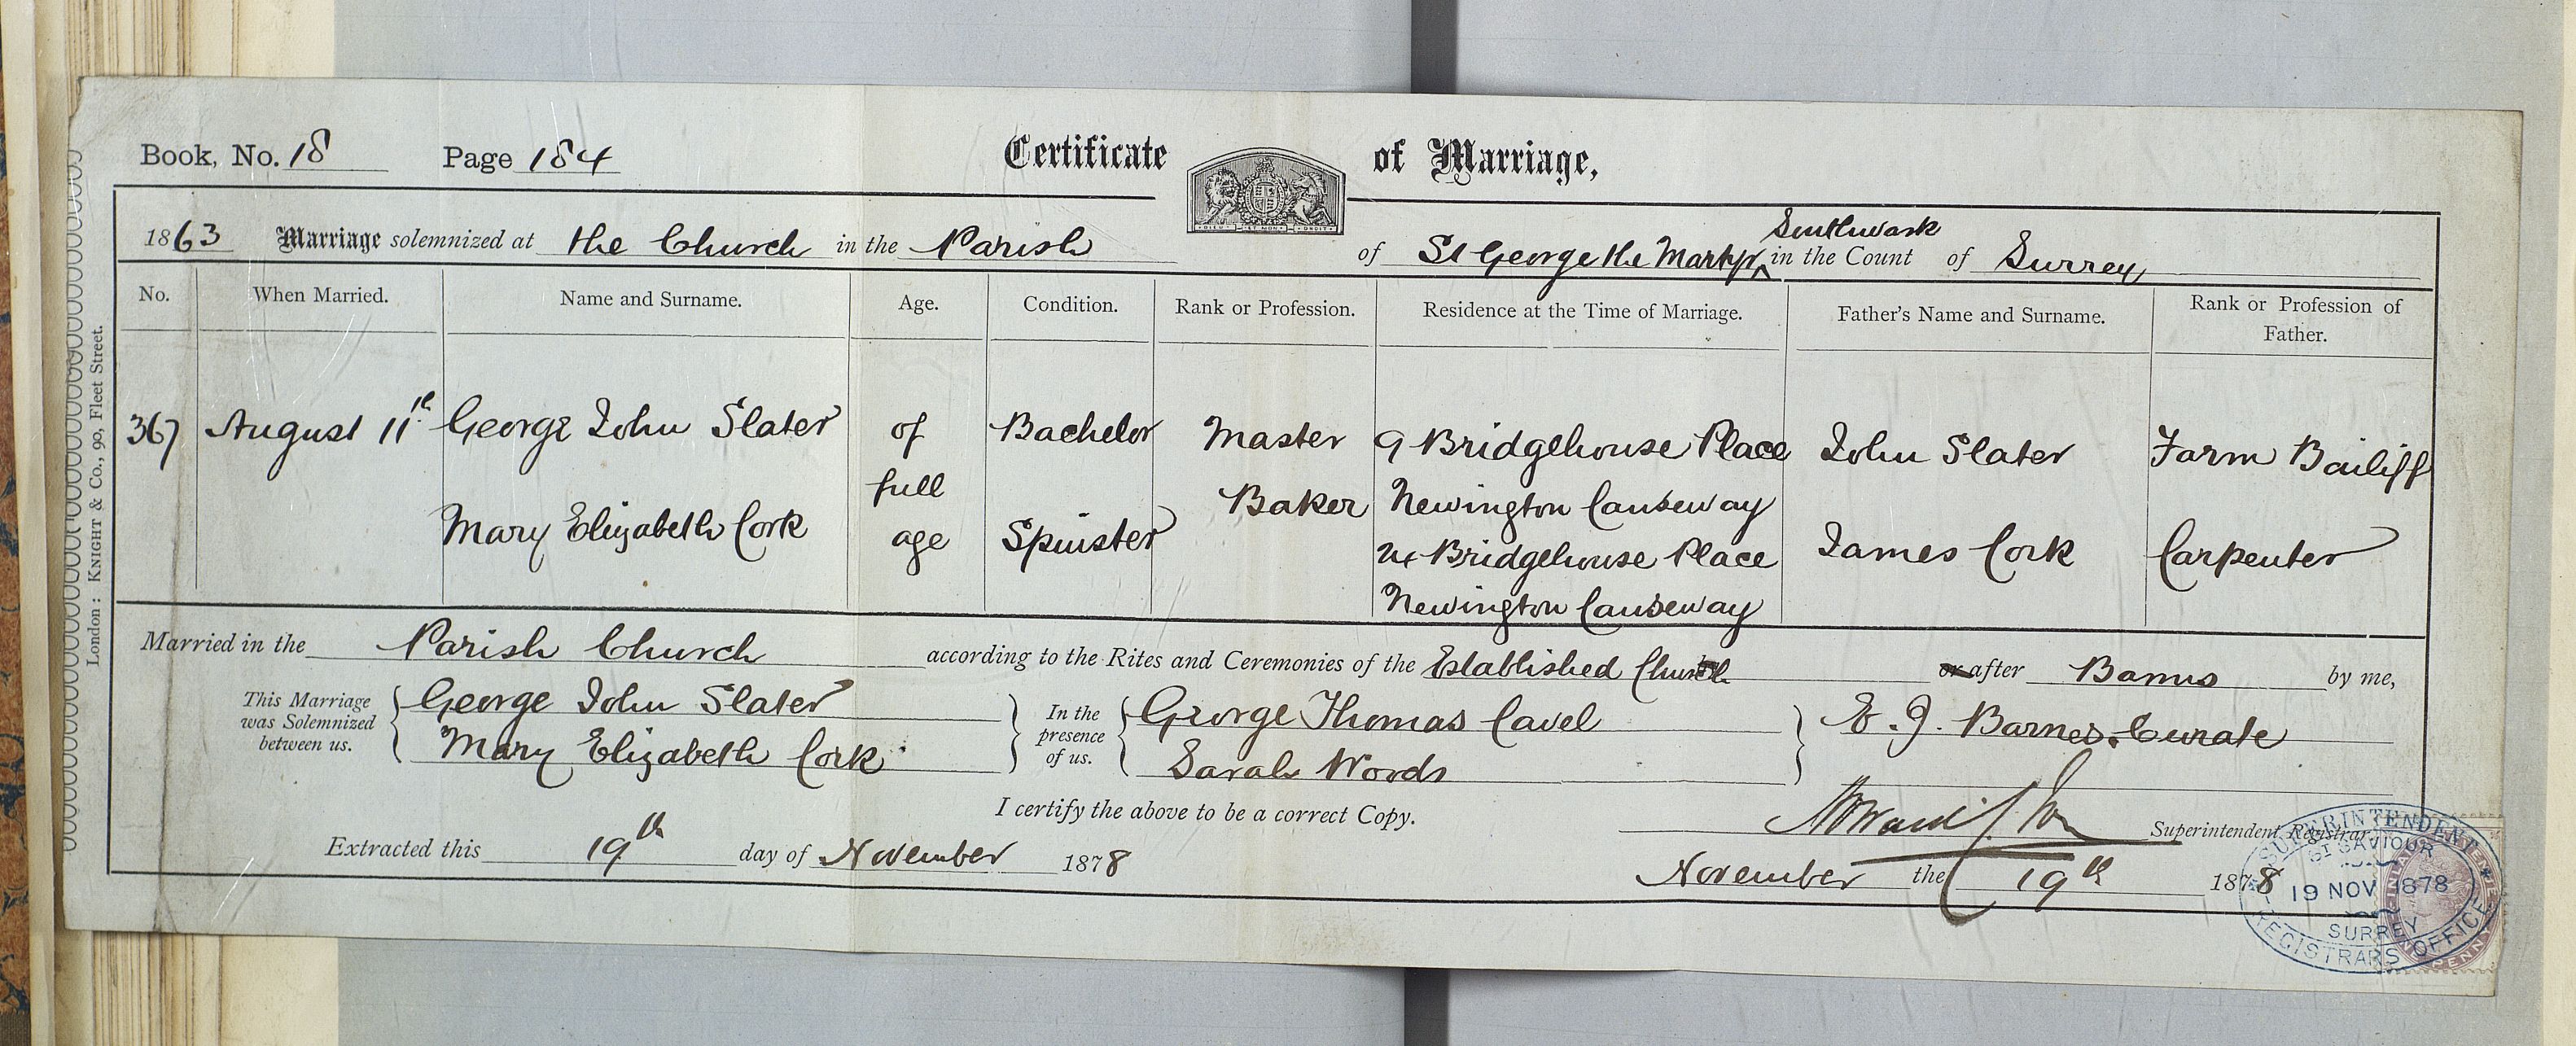 Book, No. 18 Page 184 Certificate of Marriage,
Southwark
1863 Marriage solemnized at the Church in the Parish of St George the Martyr in the Count of Surrey
No. When Married. Name and Surname. Age. Condition. Rank or Profession. Residence at the Time of Marriage. Father's Name and Surname. Rank or Profession of Father.
367 August 11th George John Slater of Bachelor Master 9 Bridgehouse Place John Slater Farm Bailiff
full Baker Newington Causeway
Mary Elizabeth Cork age Spinster 24 Bridgehouse Place James Cork Carpenter
Newington Causeway
Married in the Parish Church according to the Rites and Ceremonies of the Established Church or after Banns by me,
This Marriage was Solemnized between us. George John Slater In the presence of us. George Thomas Cavel E. J. Barnes. Curate
Mary Elizabeth Cork Sarah Woods
I certify the above to be a correct Copy.
Superintendent Registrar
Extracted this 19th day of November 1878 November the 19th 1878
London: KNIGHT & Co., 90, Fleet Street.
SUPERINTENDENT
ST SAVIOUR
19 NOV 1878
SURREY
REGISTRARS OFFICE
PENNY